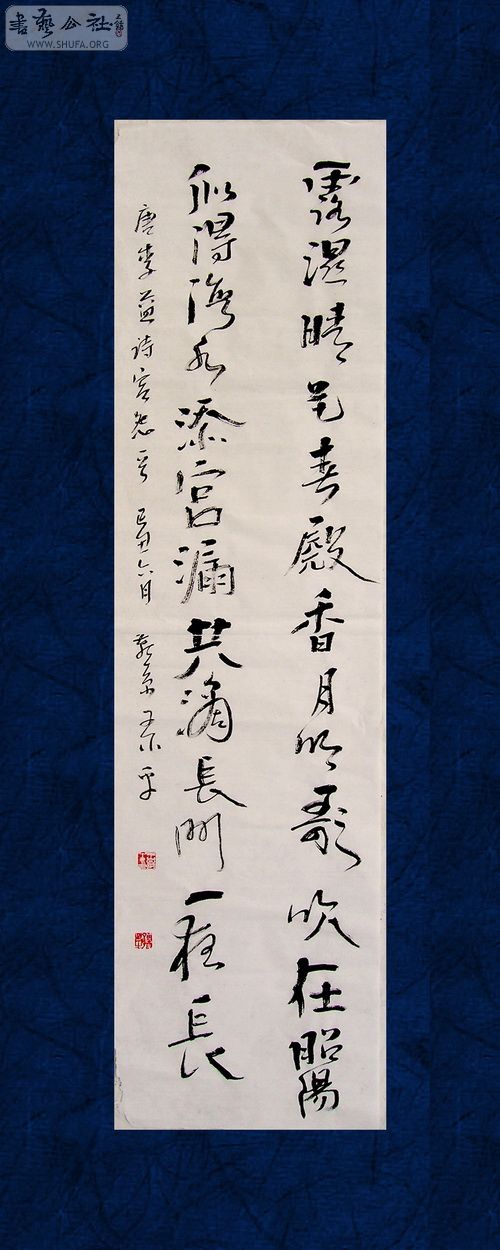 書藝公社
WWW.SHUFA.ORG
露濕晴花春殿香月明歌吹在昭陽
似得海水添宮漏共滴長門一夜長
唐李益诗宫怨 己丑六月 燕京